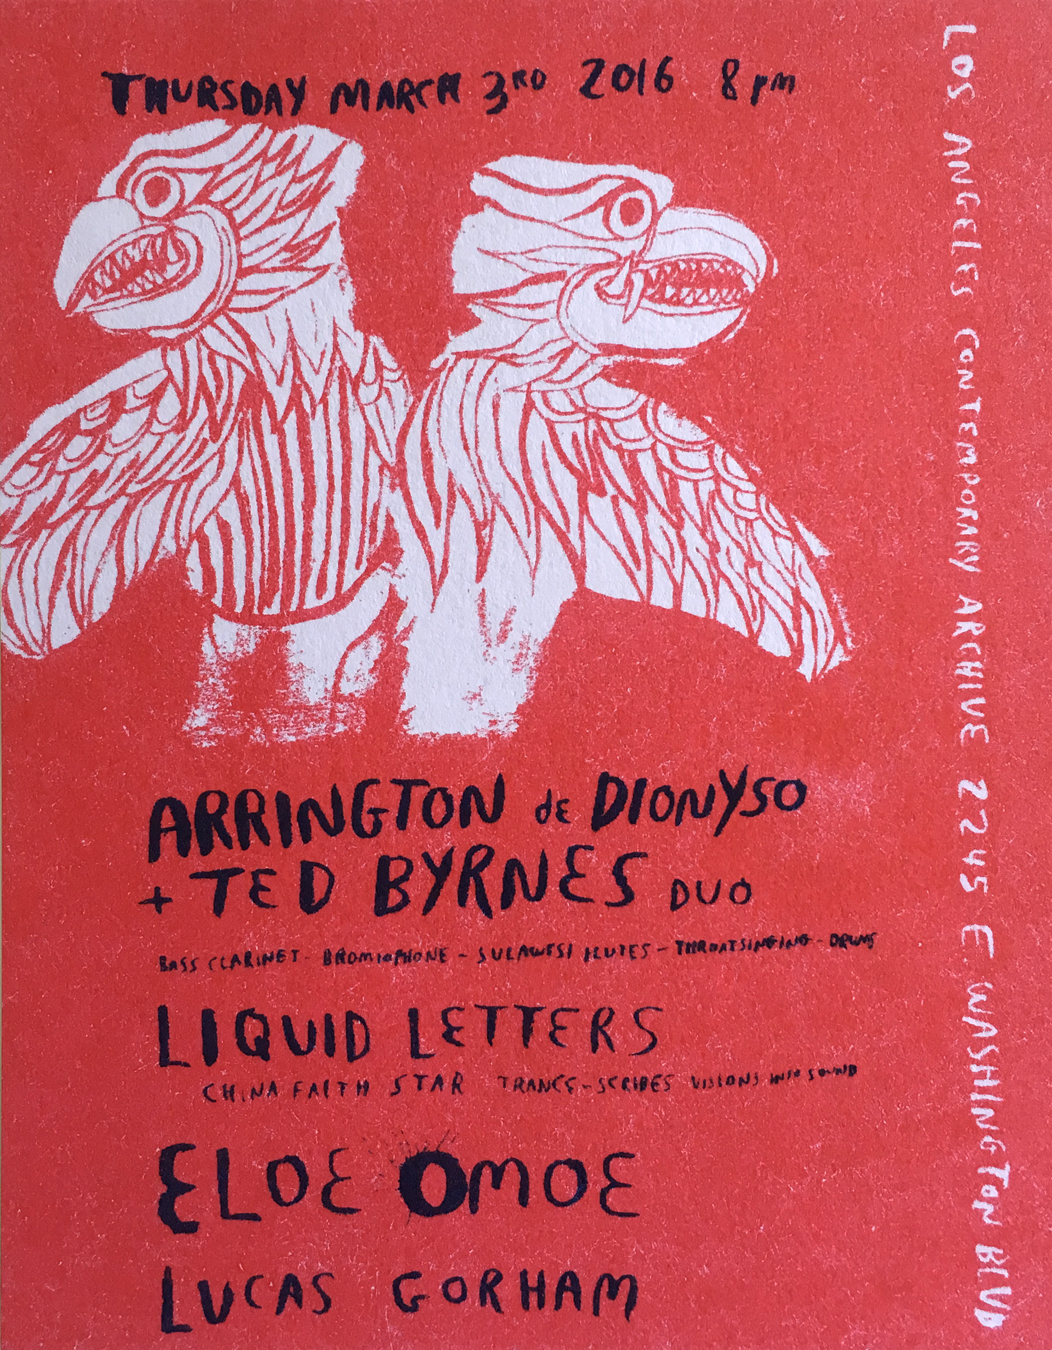 THURSDAY MARCH 3RD 2016 8pm
ARRINGTON de DIONYSO
+ TED BYRNES DUO
BASS CLARINET - BROMIOPHONE - SULAWESI FLUTES - THROATSINGING - DRUMS
LIQUID LETTERS
CHINA FAITH STAR TRANCE-SCRIBES VISIONS INTO SOUND
ELOE OMOE
LUCAS GORHAM
LOS ANGELES CONTEMPORARY ARCHIVE 2245 E. WASHINGTON BLVD